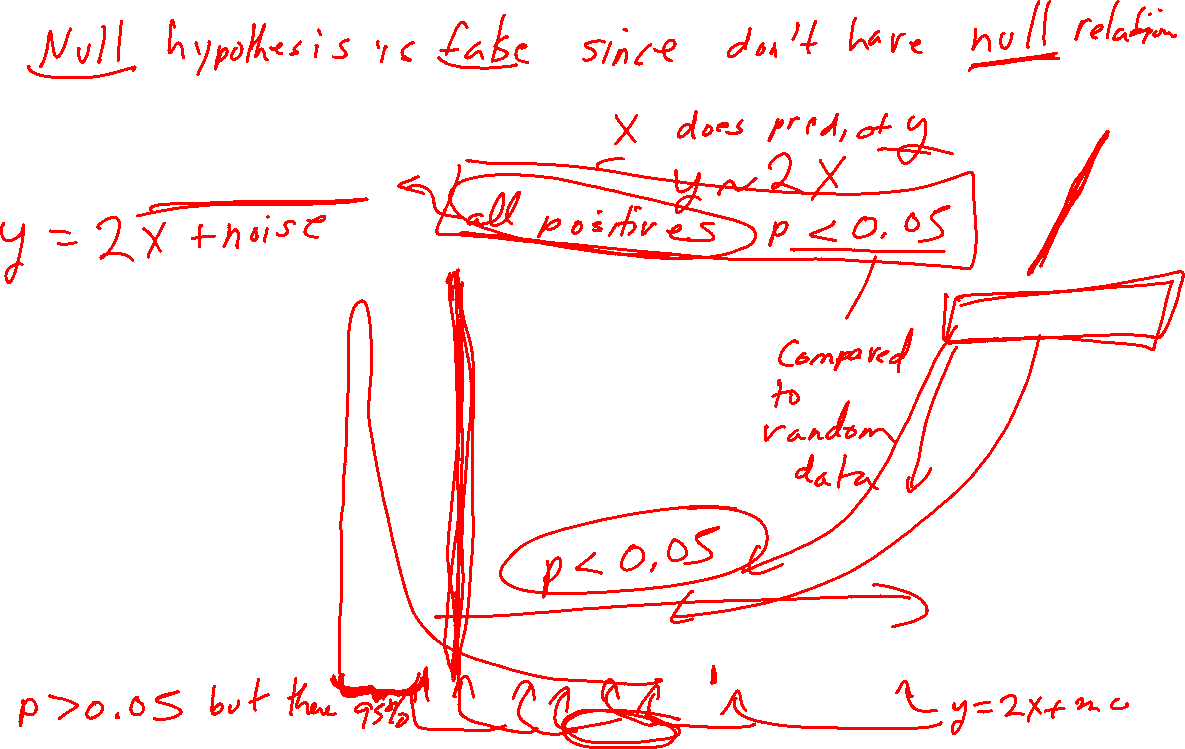 Null hypothesis is false since don't have null relation
X does predict y
y ~ 2X
y = 2x + noise
all positives p < 0.05
Compared
to
random
data
p < 0.05
p > 0.05 but there 95%
y = 2x +